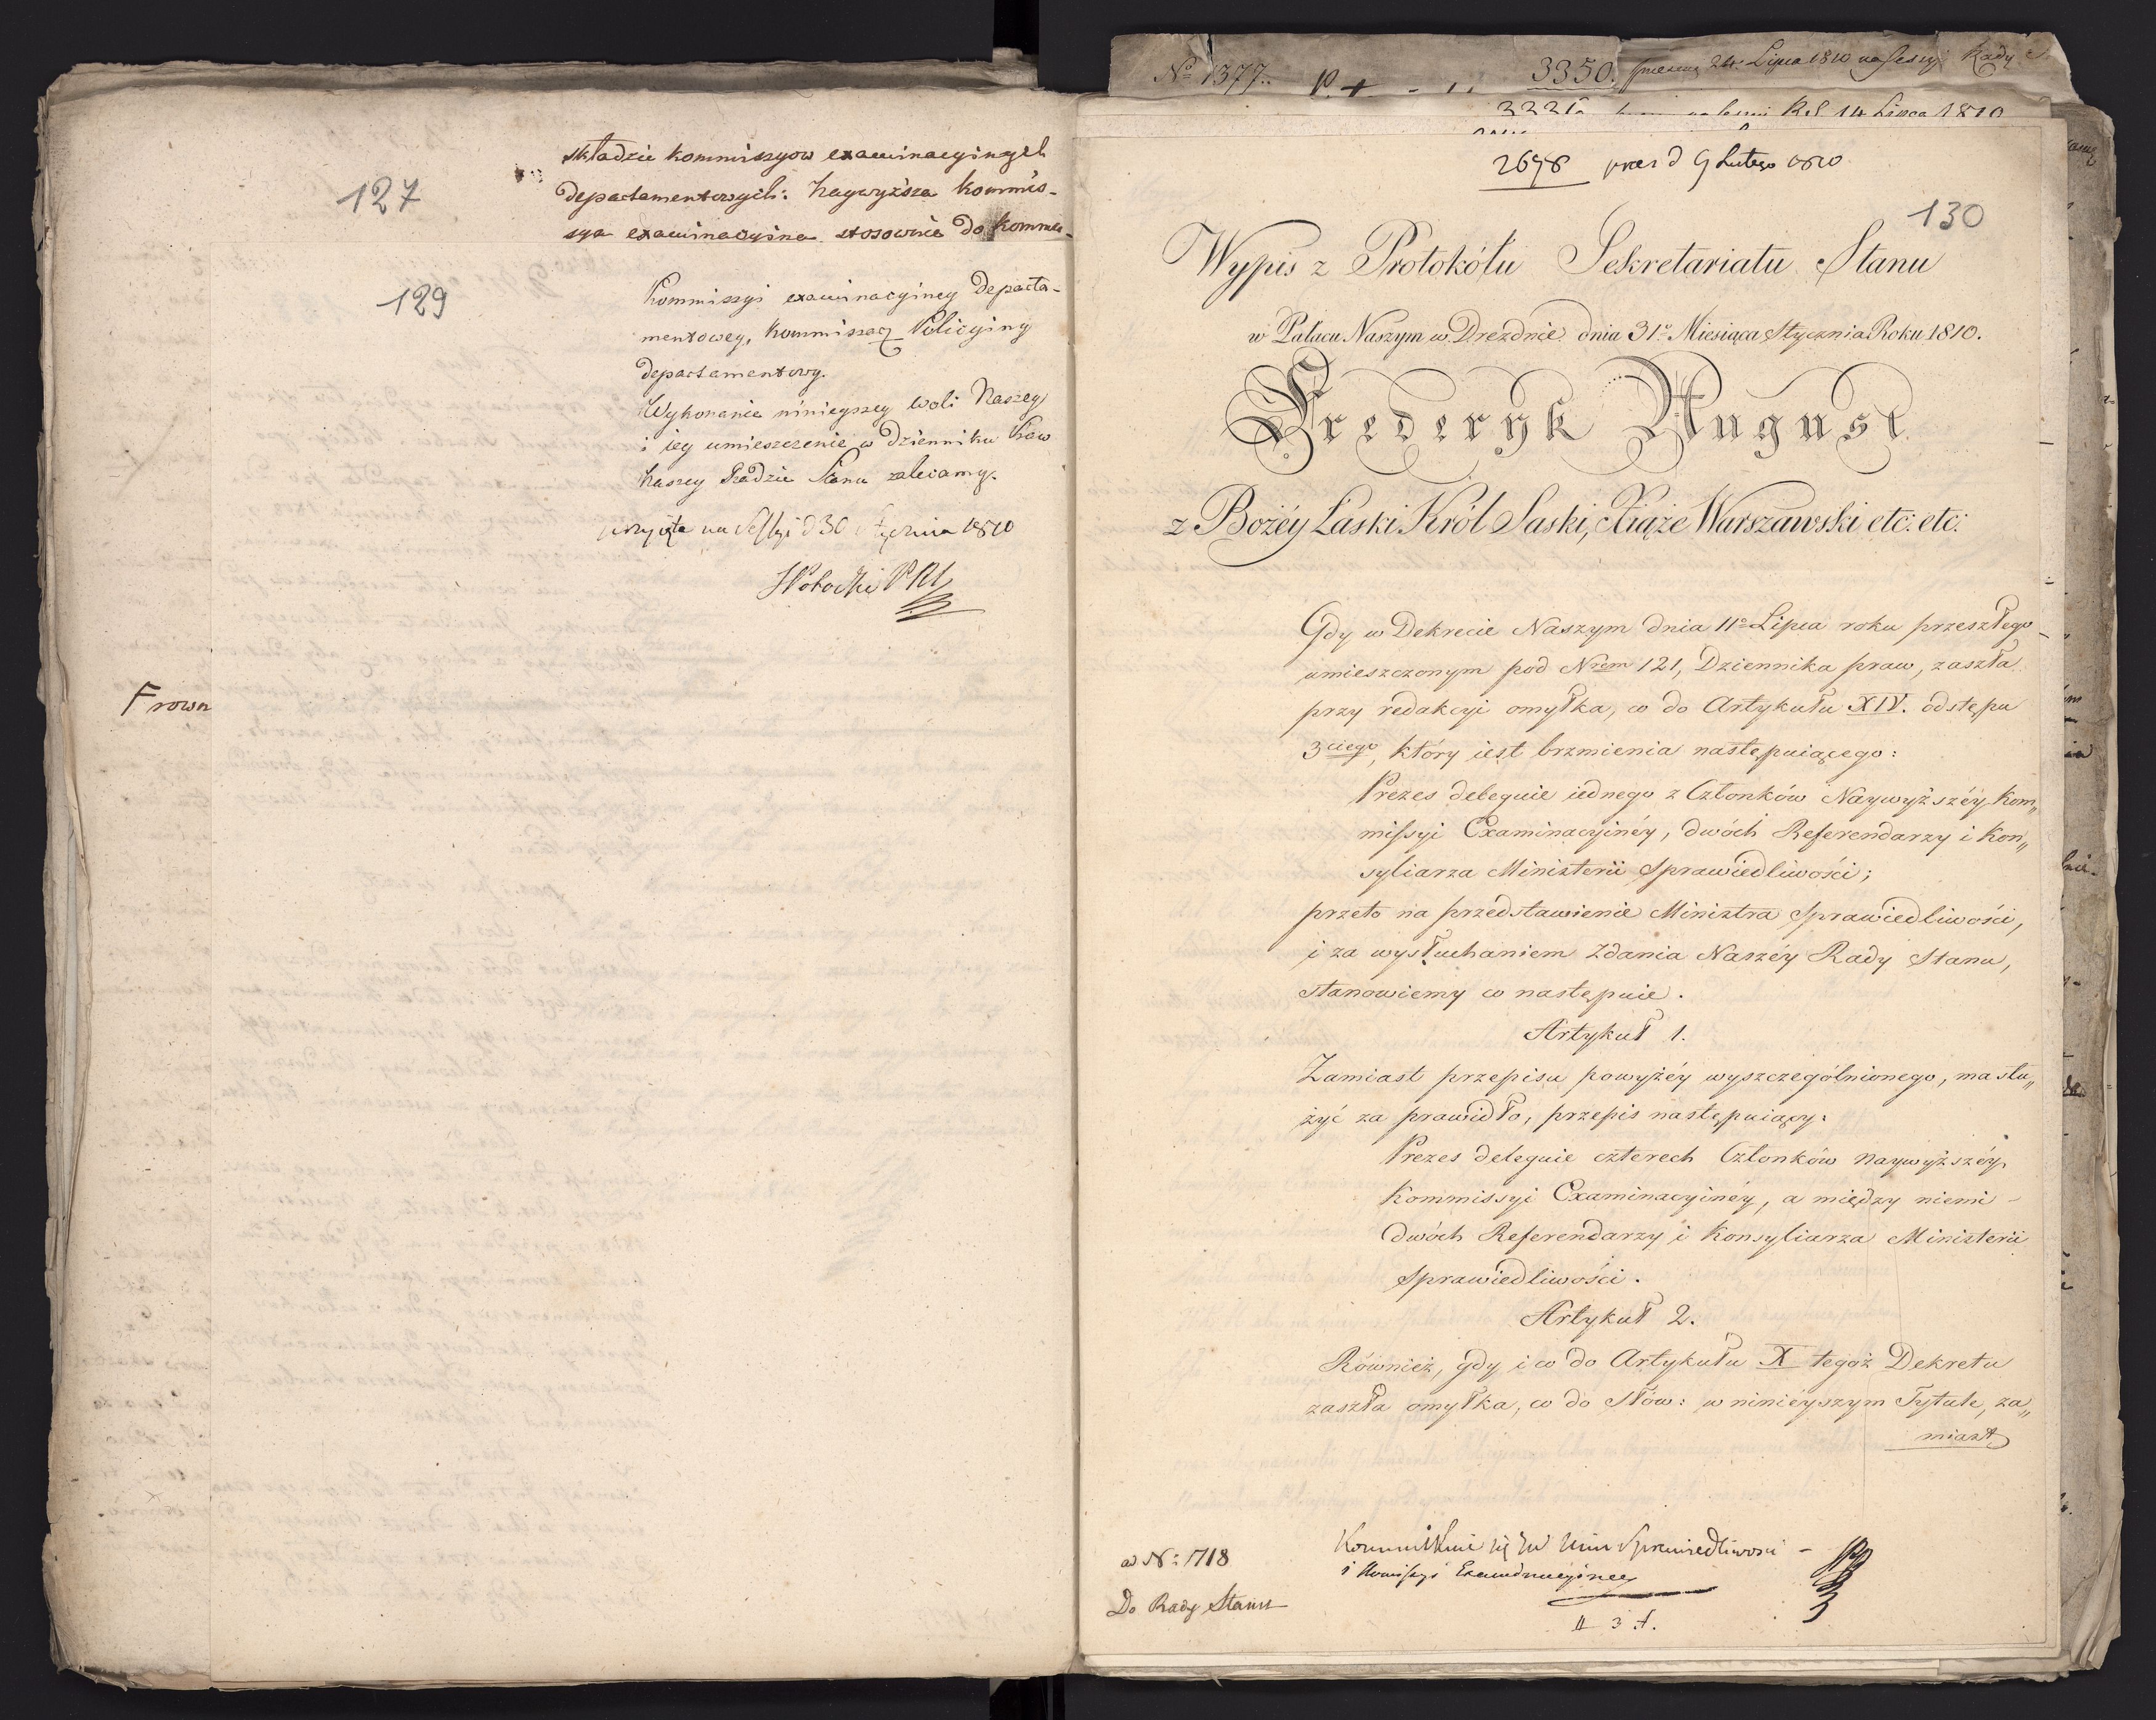 127
składzie kommissyow examinacyinych
departamentowych: Naywyższa Kommis-
sya examinacyina stosownie do Kommu-
129
Kommissyi examinacyiney departa-
mentowey, Kommissarz Policyiny
departamentowy.
Wykonanie ninieyszey woli Naszey
i iey umieszczenie w dzienniku Praw
Naszey Radzie Stanu zalecamy.
przyięta na Sessyi d 30 Stycznia 1810
F rown
No 1377.
3350. 24 Lipca 1810 na Sessyi Rady
14 Lipca 1810
2678 prez d 9 Lutego 1810
130
Wypis z Protokółu Sekretariatu Stanu
w Pałacu Naszym w Dreznie dnia 31o Miesiąca Stycznia Roku 1810.
Frederyk August
z Bożéy Łaski Król Saski, Xiąże Warszawski etc: etc:
Gdy w Dekrecie Naszym dnia 11o Lipca roku przeszłego
umieszczonym pod Nrem 121, Dziennika praw, zaszła
przy redakcyi omyłka, co do Artykułu XIV. odstępu
3ciego, który iest brzmienia następuiącego:
Prezes deleguie iednego z Członków Naywyższéy Kom„
missyi Examinacyinéy, dwóch Referendarzy i Kon„
syliarza Ministerii Sprawiedliwości;
przeto na przedstawienie Ministra Sprawiedliwości,
i za wysłuchaniem Zdania Naszéy Rady Stanu,
stanowiemy co następuie.
Artykuł 1.
Zamiast przepisu powyżéy wyszczególnionego, ma słu„
żyć za prawidło, przepis następuiący:
Prezes deleguie czterech Członków Naywyższéy
Kommissyi Examinacyinéy, a między niemi -
dwóch Referendarzy i Konsyliarza Ministerii
Sprawiedliwości.
Artykuł 2.
Również, gdy i co do Artykułu X tegoż Dekretu
zaszła omyłka, co do słów: w ninieyszym Tytule, za„
miast
ad N: 1718
Do Rady Stanu
Min Sprawiedliwosci -
i Komissyi Examinacyiney